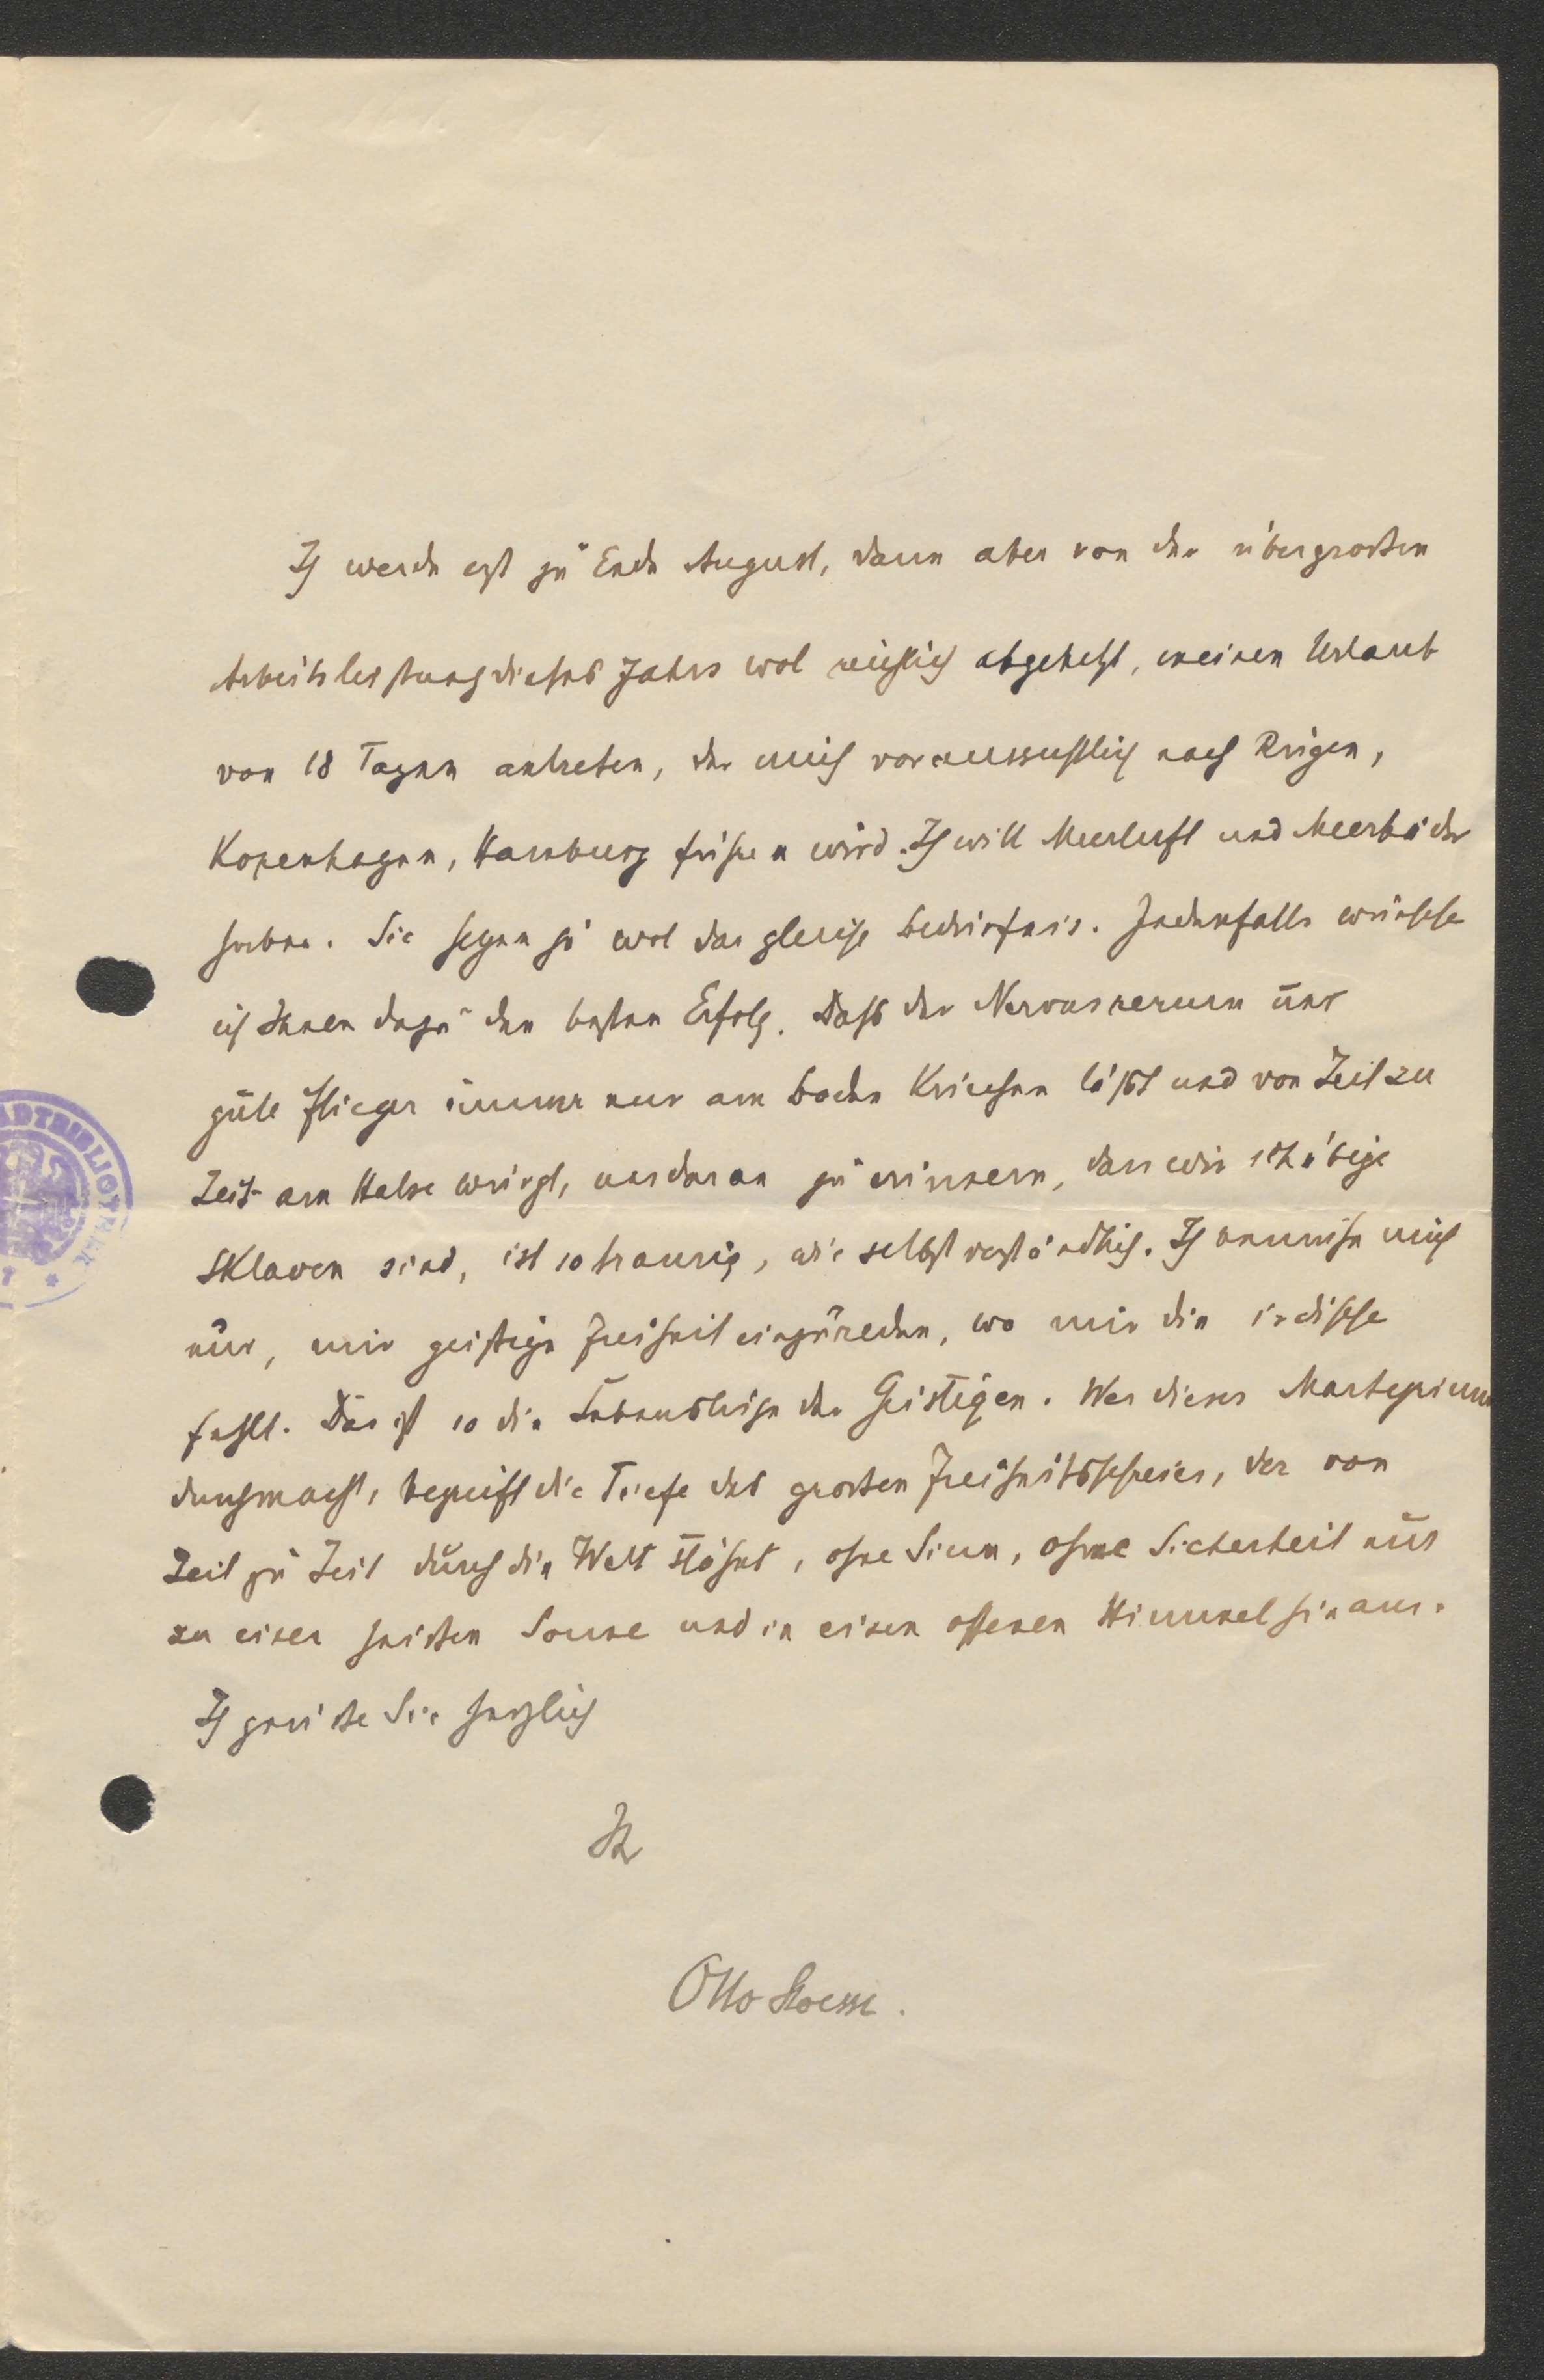 Ich werde erst zu Ende August, dann aber von der übergrossen
Arbeitsleistung dieses Jahrs wol reichlich abgehetzt, meinen Urlaub
von 18 Tagen antreten, der mich voraussichtlich nach Rügen,
Kopenhagen, Hamburg führen wird. Ich will Meerluft und Meerbäder
haben. Sie hegen ja wol das gleiche Bedürfnis. Jedenfalls wünsche
ich Ihnen dazu den besten Erfolg. Dass der Nervus rerum uns
gute Flieger immer nur am Boden kriechen lässt und von Zeit zu
Zeit am Halse würgt, uns daran zu erinnern, dass wir schäbige
Sklaven sind, ist so traurig, wie selbstverständlich. Ich bemühe mich
nur, mir geistige Freiheit einzureden, wo mir die irdische
fehlt. Das ist so die der Geistigen. Wer dieses Martyrium
durchmacht, begreift die Tiefe des grossen Freiheitsschreies, der von
Zeit zu Zeit durch die Welt stöhnt, ohne Sinn, ohne Sicherheit nur
zu einer heissen Sonne und in einen offenen Himmel hinaus.
Ich grüsse Sie herzlich
Ihr
Otto Stoessl.
ADTBIBLIOTHEK